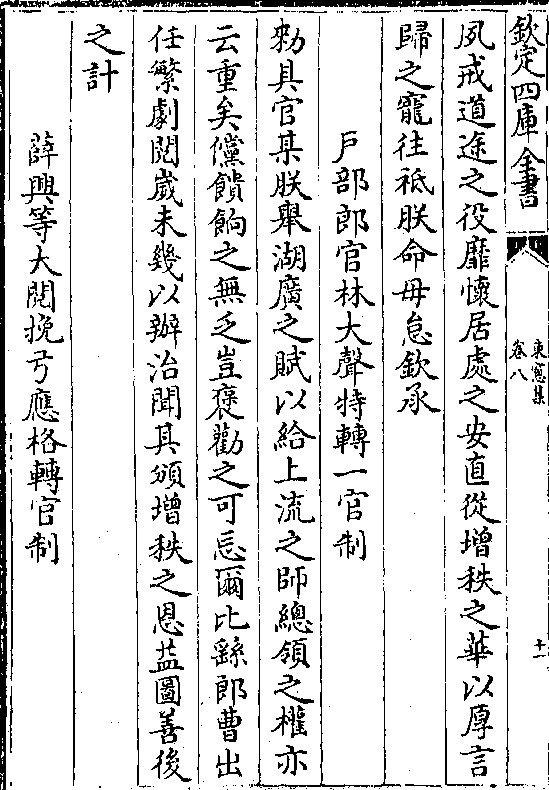 欽定四庫全書
東窻集
卷八
十一
夙戒道途之役靡懷居處之安直從增秩之華以厚言
歸之寵往祗朕命毋怠欽承
戶部郎官林大聲特轉一官制
勑具官某朕舉湖廣之賦以給上流之師總領之權亦
云重矣儻饋餉之無乏豈褒勸之可忘爾比繇郎曹出
任繁劇閱歲未幾以辦治聞其頒增秩之恩葢圖善後
之計
薛興等大閱挽弓應格轉官制